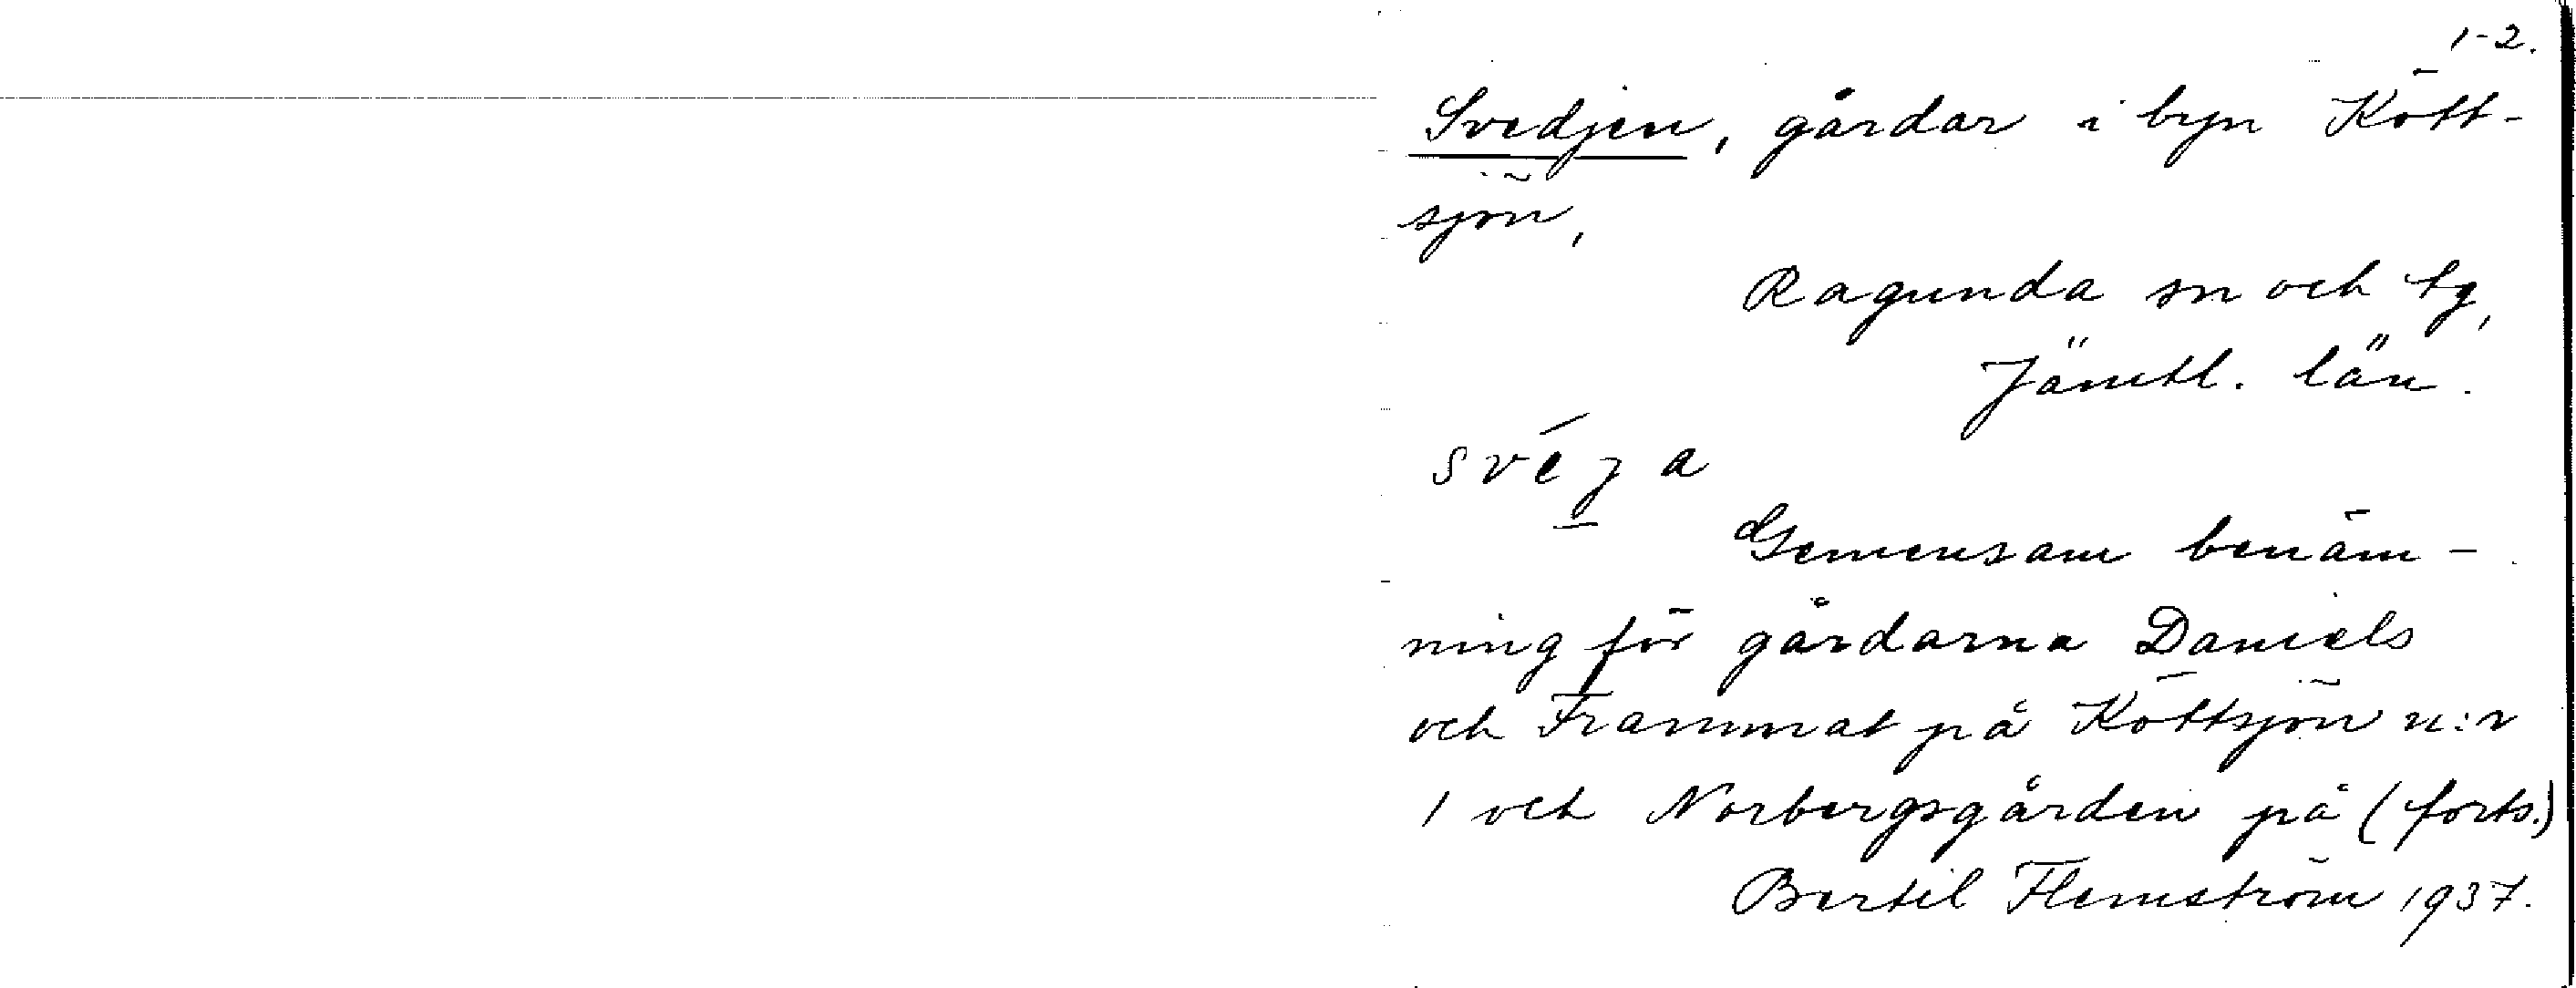 1-2.
Svedjen, gårdar i byn Kött-
sjön,
Ragunda sn och tg,
Jämtl. län.
svéja
Gemensam benäm-
ning för gårdarna Daniels
och Frammat på Köttsjön n:r
1 och Norbergsgården på (forts.)
Bertil Flemström 1937.